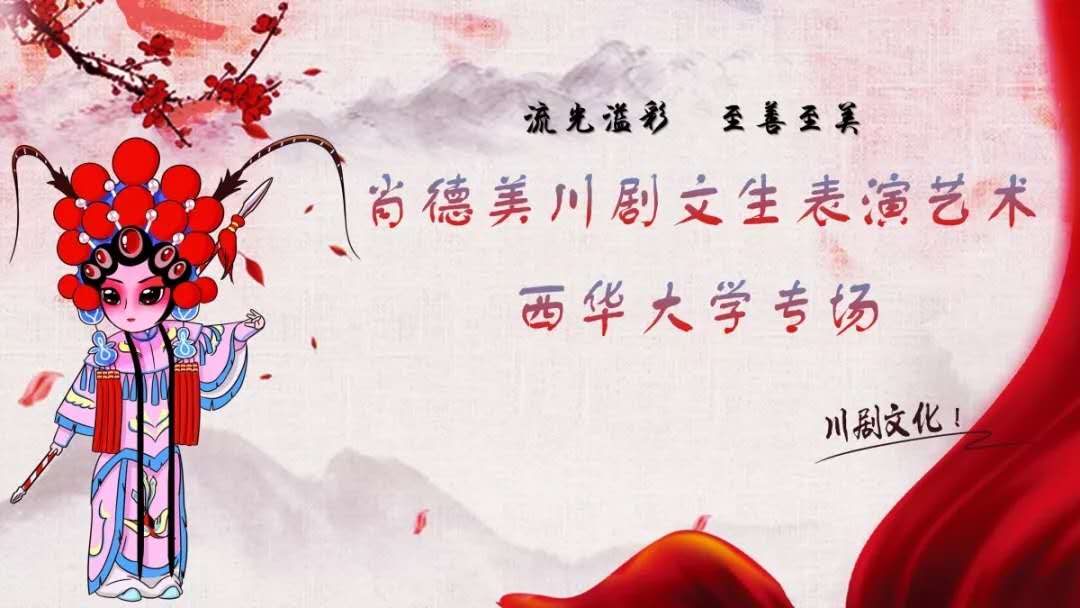 流光溢彩 至善至美
肖德美川剧文生表演艺术
西华大学专场
川剧文化！